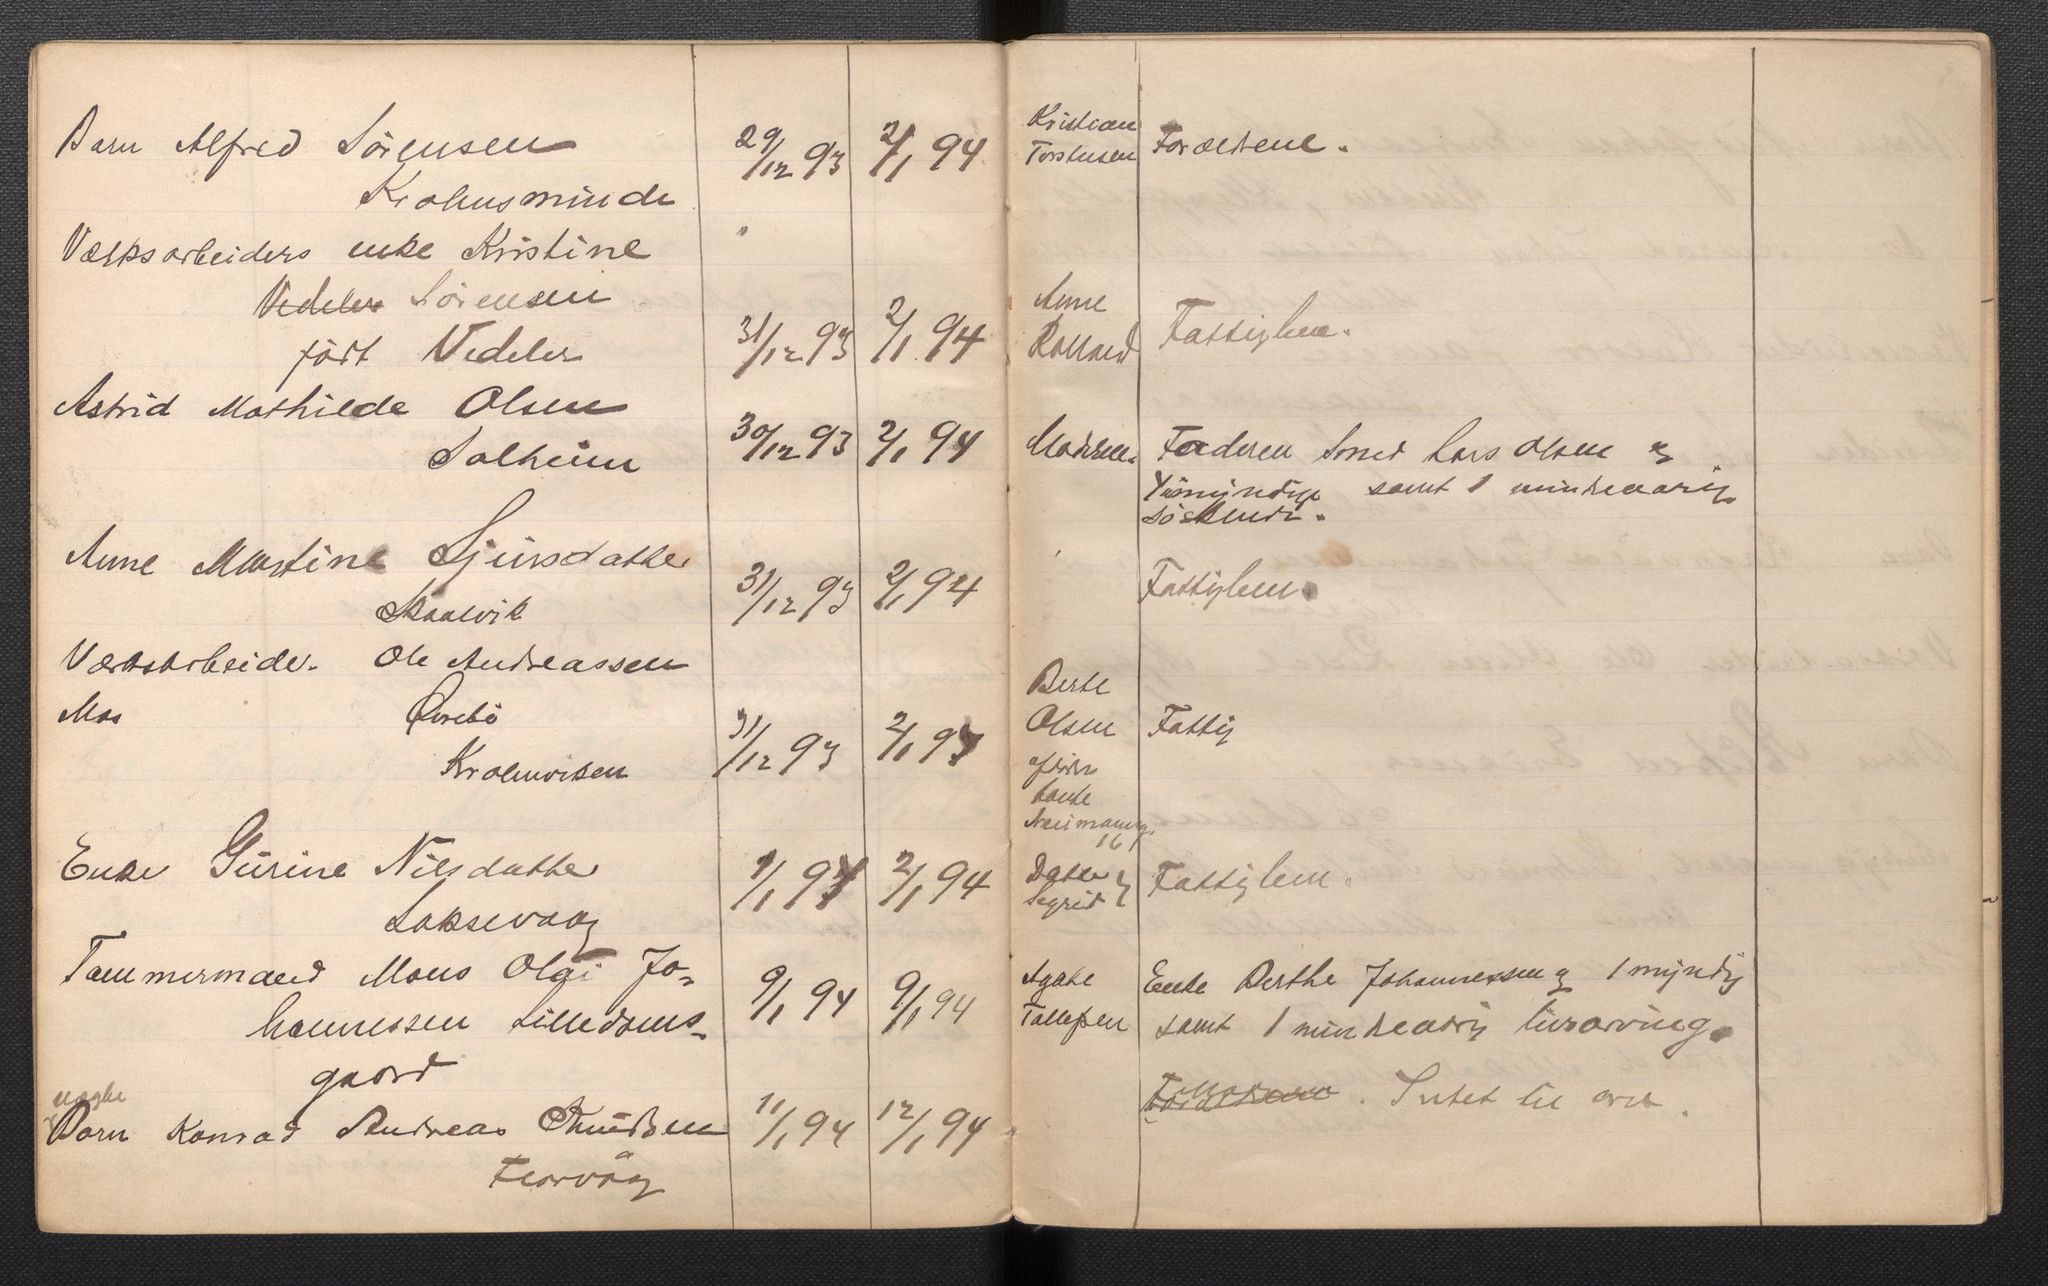 Barn Alfred Sörensen 29/12 93 2/1 94 Kristian Torstensen Forældrene.
Krohnsminde
Værksarbeiders enke Kristine "
Vedeler Sörensen Anne
född Vedeler 31/12 93 2/1 94 Fattiglem.
Astrid Mathilde Olsen
Solheim 30/12 93 2/1 94 Moderen. Faderen Smed Lars Olsen og
myndige samt 1 mindreaarig
Söskende.
Anne Martine Sjursdatter
Skaalvik 31/12 93 2/1 94 Fattiglem.
Værksarbeider Ole Andreassen Berte
Mos Övrebö Olsen Fattig
Krohnviken 31/12 93 2/1 94
Neumannsg.
161
Enke Gurine Nilsdatter 1/1 94 2/1 94 Datter Sigrid Fattiglem.
Laksevaag
Tømmermand Mons Olai Jo- 9/1 94 9/1 94 Agate Enke Berthe Johannessen og 1 myndig
hannessen Lilledams- Tollefsen samt 1 mindreaarig livsarving.
gaard
uægte Moderen
Barn Konrad Andreas Knudsen 11/1 94 12/1 94 Forældrene. Intet til arv.